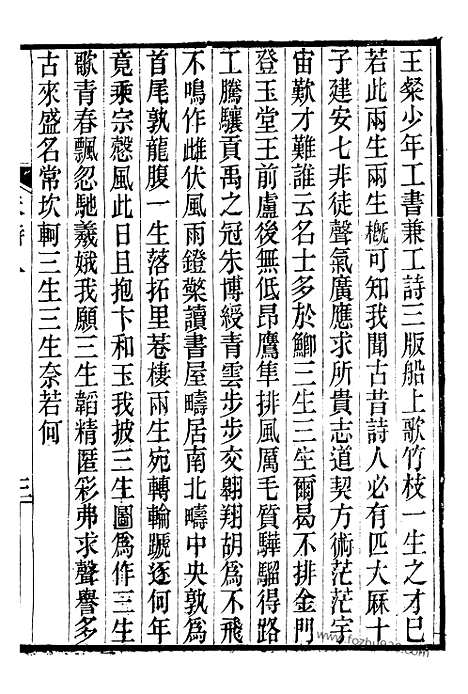 王粲少年工書兼工詩三版船上歌竹枝一生之才已
若此兩生兩生概可知我聞古昔詩人必有匹大厤十
子建安七非徒聲氣廣應求所貴志道契方術茫茫宇
宙歎才難誰云名士多於鯽三生三生爾曷不排金門
登玉堂王前盧後無低昂鷹隼排風厲毛質驊騮得路
工騰驤貢禹之冠朱博綬青雲步步交翱翔胡爲不飛
不鳴作雌伏風雨鐙檠讀書屋疇居南北疇中央孰爲
首尾孰龍腹一生落拓里巷棲兩生宛轉輪蹏逐何年
竟乘宗慤風此日且抱卞和玉我披三生圖爲作三生
歌青春飄忽馳羲娥我願三生韜精匿彩弗求聲譽多
古來盛名常坎軻三生三生奈若何
三